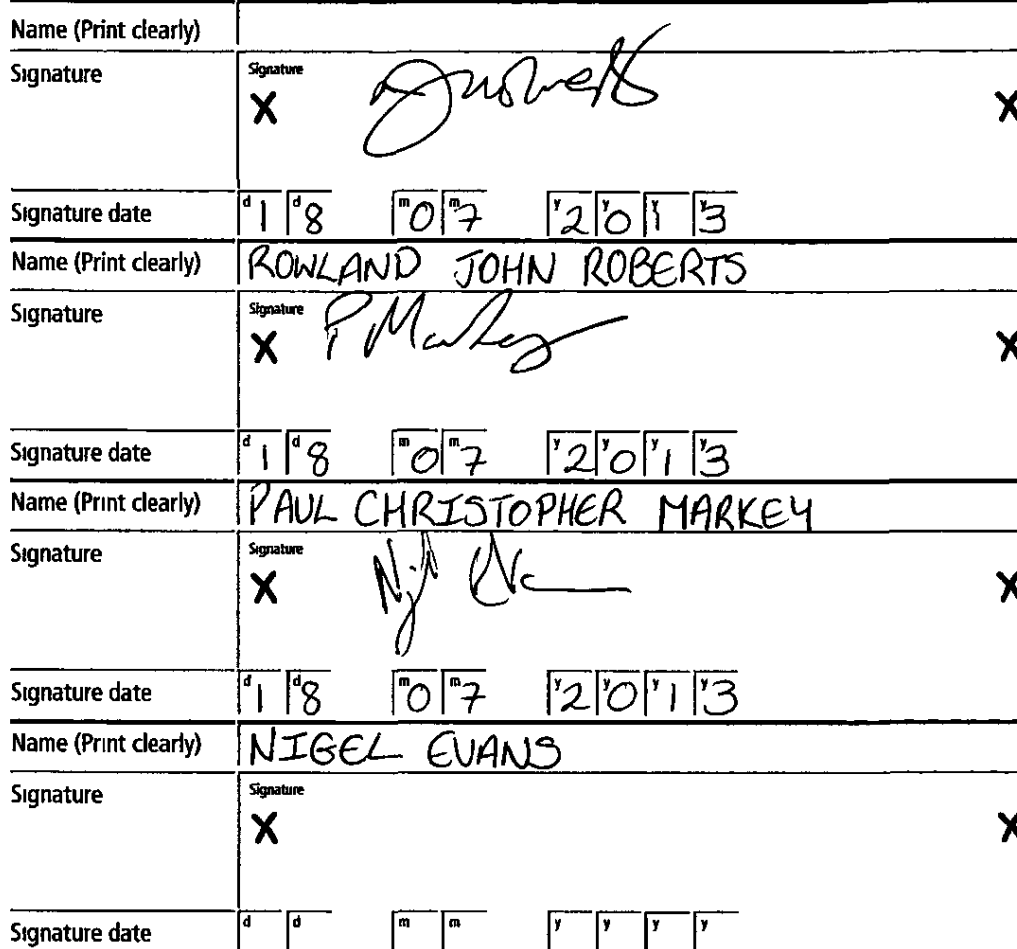 Name (Print clearly)
Signature
Signature
X X
Signature date d 1 d 8 m 0 m 7 y 2 y 0 y 1 y 3
Name (Print clearly) ROWLAND JOHN ROBERTS
Signature
Signature
X P Markey X
Signature date d 1 d 8 m 0 m 7 y 2 y 0 y 1 y 3
Name (Print clearly) PAUL CHRISTOPHER MARKEY
Signature
Signature
X X
Signature date d 1 d 8 m 0 m 7 y 2 y 0 y 1 y 3
Name (Print clearly) NIGEL EVANS
Signature
Signature
X X
Signature date d d m m y y y y